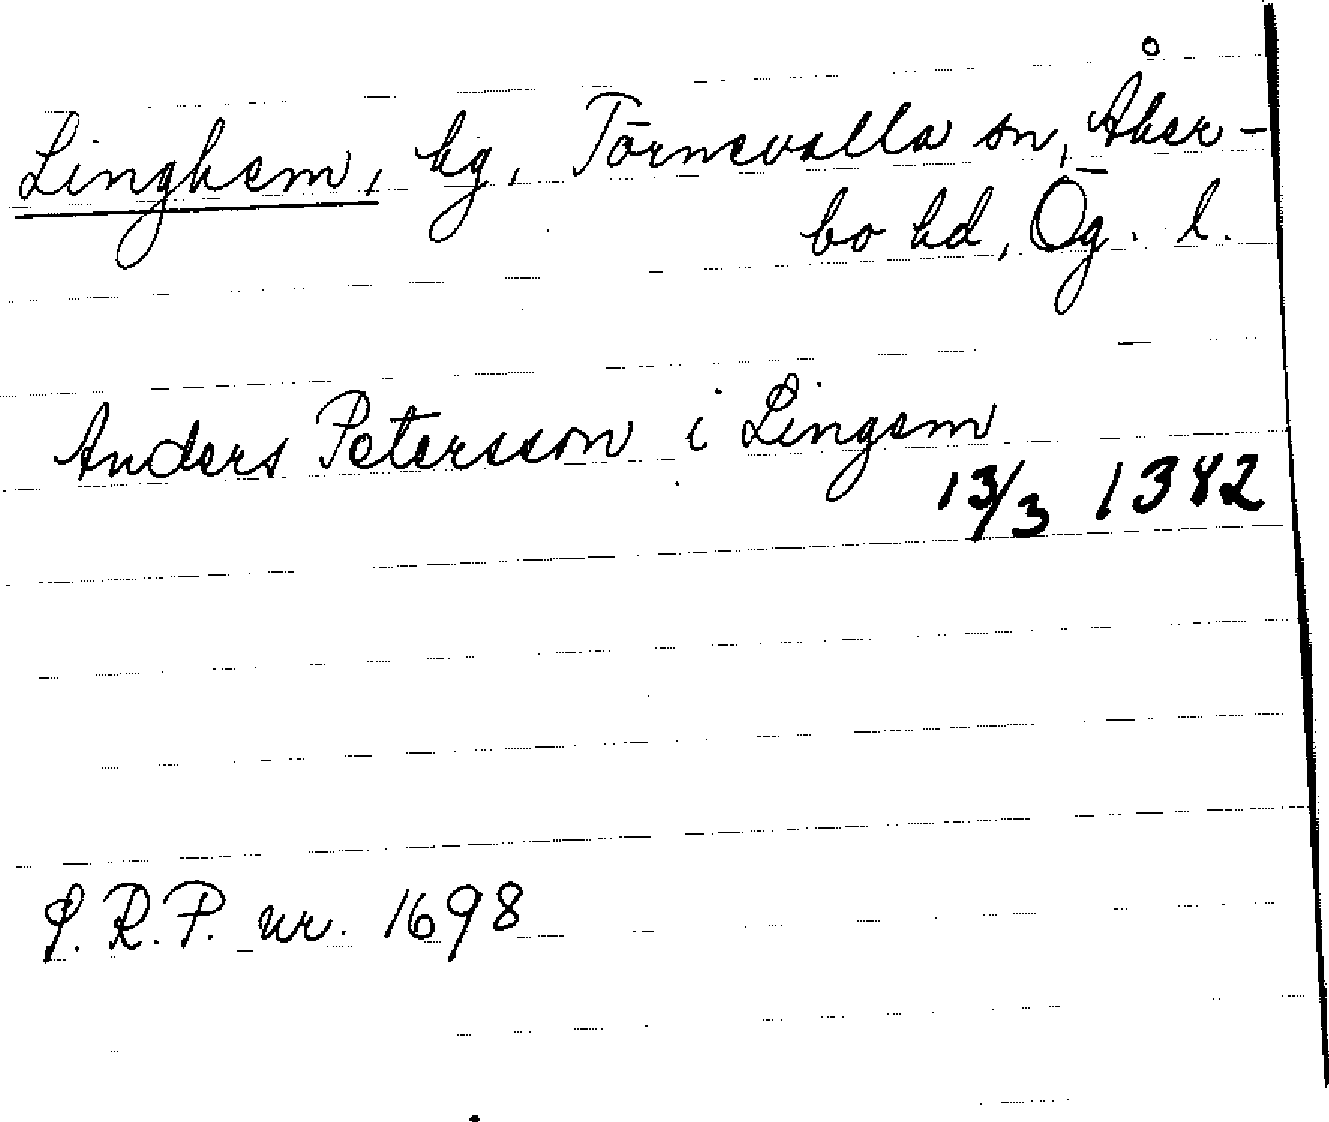 Linghem, hg, Törnevalla sn, Åker-
bo hd, Ög. l.
Anders Petersson i Lingem
13/3 1382
S.R.P. nr. 1698